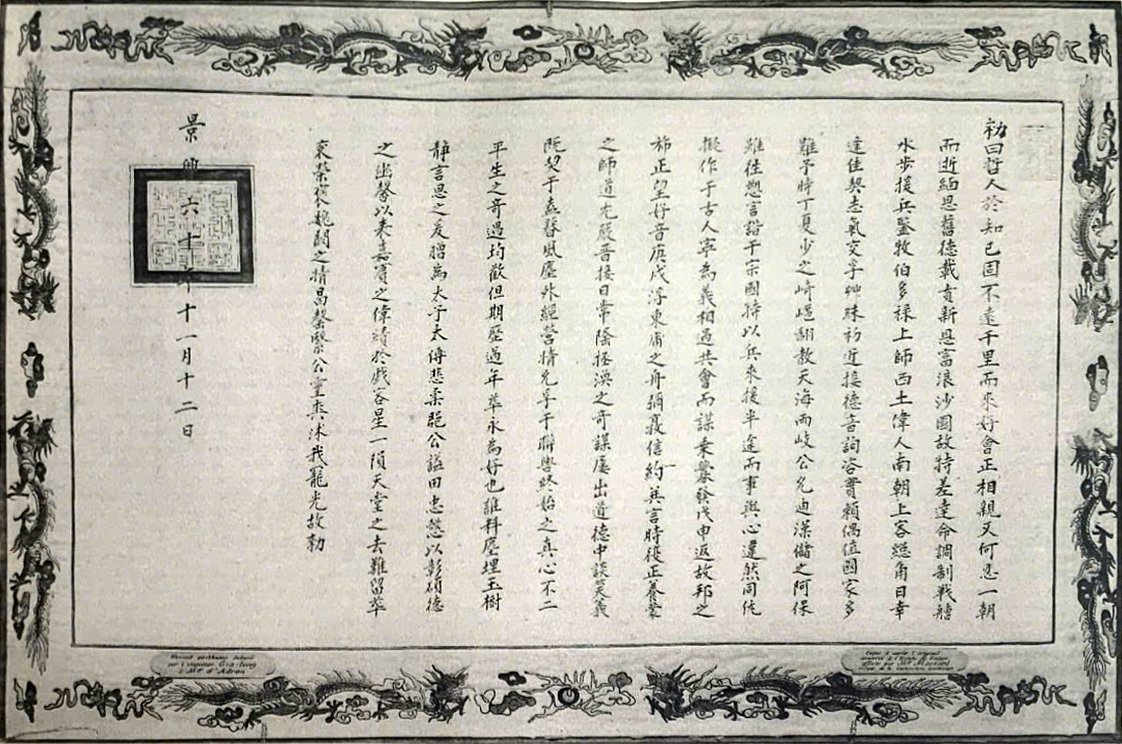 勅曰哲人於知己固不遠千里而來好會正相親又何忍一朝
而逝緬思舊德載賁新恩富浪沙國故特差達命調制戰艚
水步援兵鑒牧伯多祿上師西土偉人南朝上客總角日幸
達佳契志氣交孚艸昧初近接德音詢咨實賴偶值國家多
難予時丁夏少之崎嶇翻教天海而岐公允迪漢儲之阿保
雖往愬言諧于宗國特以兵來後半途而事與心違然同仇
擬作于古人寧為義相過共會而謀乘釁發戊申返故邦之
旆正望好音庚戌浮東南之舟彌襄信約英言時從正養蒙
之師道尤嚴晉接日常陰拯溺之奇謀屢出道德中談笑義
既契于盍簪風塵外經營情允孚于聯轡終始之真心不二
平生之奇遇均歡但期歷過年華永為好也誰料塵埋玉樹
靜言思之爰贈為太子太傅悲柔郡公諡曰忠愨以彰碩德
之幽馨以表嘉賓之偉績於戲客星一隕天堂之去難留華
袞榮褒魏闕之情曷罄繄公靈爽沐我寵光故勅
景興六十年十一月十二日
Brevet posthume délivré
par l'empereur Gia-long
à Mgr d'Adran
Copie d'après l'original
offerte par Mgr Mossard